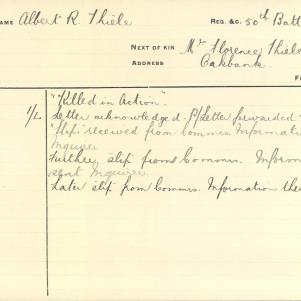 NAME Albert R. Thiele REG. &C. 50th Batt
NEXT OF KIN Mrs Florence Thiele
ADDRESS Oakbank
"Killed in Action".
1/2 Letter acknowledged. P/Letter forwarded
"slip" received from Commrs. Information
Inquirer
Further slip from Commrs. Inform
sent Inquirer
Later slip from Commrs. Information the